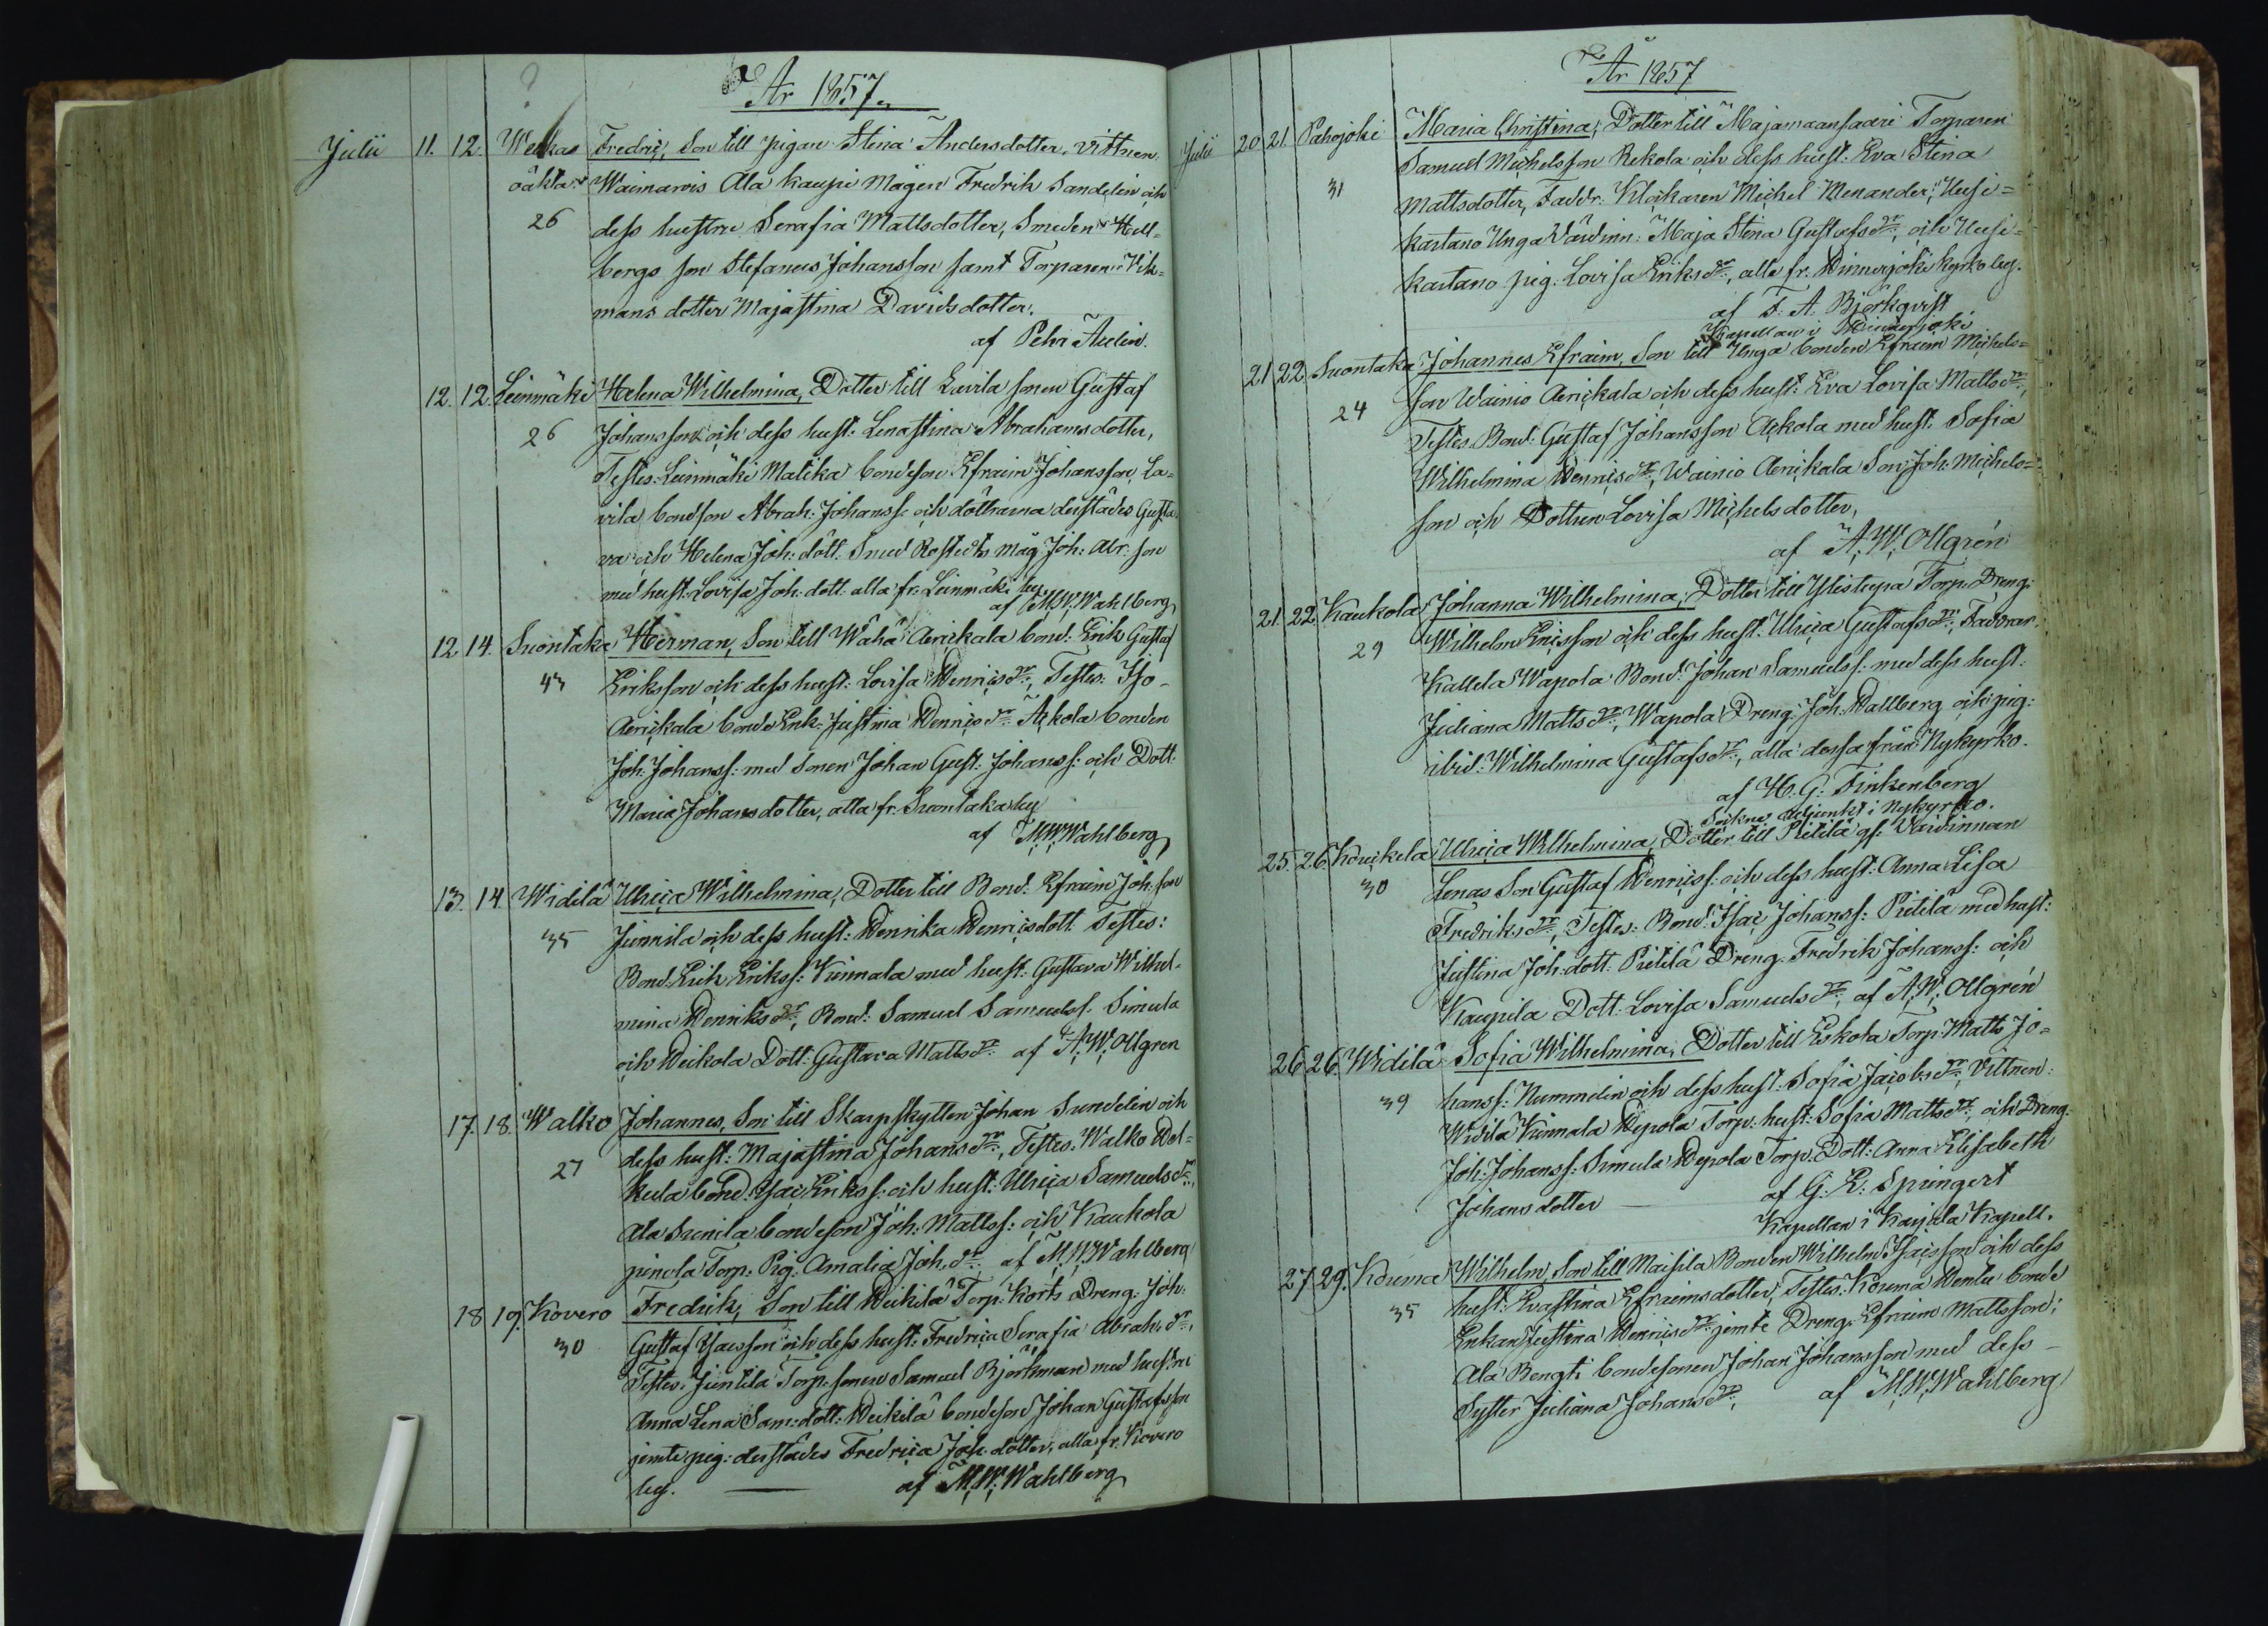 År 1857.
Julii 11. 12. Weikas Fredric, Son till pigan Stina Andersdotter. Vittnen:
oäkta Waimaris Ala kaupi Mågen Fredrik Sandelin och
26 dess hustru Serafia Mattsdotter, Smeden Hell-
bergs son Stefanus Johansson samt Torparen Vik-
mans dotter Majastina Davidsdotter.
af Pehr Aulin.
12. 12. Leinmäki Helena Wilhelmina, Dotter till Lavila sonen Gustaf
26 Johansson och dess hust: Lenastina Abrahamsdotter,
Testes: Leinmäki Matika bondeson Efraim Johansson, La-
vila bondson Abrah. Johanss: och döttrarna derstädes Gusta-
va och Helena Joh: dött. Smed Rostedts måg Joh: Abr. son
med hust. Lovisa Joh. dott. alla fr. Leinmäki by.
af M. W. Wahlberg
12 14. Suontaka Herman, Son till Wähä Aerickala bond: Erik Gustaf
43 Eriksson och dess hust: Lovisa Henricsdr:, Testes: Iso-
Aerickala bonde Enk: Justina Henricsdr: Äckola bonden
Joh: Johanss: med sonen Johan Gust: Johanss: och Dott.
Maria Johansdotter, alla fr. Suontaka by
af M. W. Wahlberg
13. 14. Widilä Ulrica Wilhelmina, Dotter till Bond: Efraim Joh:son
35 Junnila och dess hust: Henrika Henricsdott. Testes:
Bond: Erik Erikss: Kinnala med hust: Gustava Wilhel-
mina Henriksdr:, Bond: Samuel Samuelss. Simula
och Heikola Dott: Gustava Mattsdr: af A. W. Ollgren
17. 18. Walko Johannes, Son till Skarpskytten Johan Sundelin och
27 dess hust: Majastina Johansdr:, Testes: Walko
kula bond. Isac Erikss: och hust: Ulrica Samuelsdr:,
Ala Sunila bondeson Joh: Mattss: och Kaukola
Torp. Pig: Amalia Joh. dr. af M. W. Wahlberg
18 19. Kovero Fredrik, Son till Heikilä Torp: Korts Dreng: Joh:
30 Gustaf Isacsson och dess hust: Fredrica Serafia Abrah. dr.,
Testes: Juntila Torp. sonen Samuel Björkman med hustru
Anna Lena Sam: dott. Heikilä bondeson Johan Gustafsson
jemte pig: derstädes Fredrica Joh: dotter, alla fr. Kovero
by. af M. W. Wahlberg
År 1857
Julii 20 21. Pahojoki Maria Christina, Dotter till Majamaansaari Torparen
Samuel Michelsson Rekola och dess hust. Eva Stina
31 Mattsdotter, Faddr: Klockaren Michel Menander, Uusi-
kartano Unga Värdinn: Maja Stina Gustafsdr:, och Uusi-
kartano pig. Lovisa Eriksdr:, alla fr. Hinnerjoki kyrkoby.
af F. A. Björkqvist
Kapellan i Hinnerjoki
21 22. Suontaka Johannes Efraim, Son till Unga bonden Efraim Michels-
24 son Wainio Aerickala och dess hust: Eva Lovisa Mattsdr:,
Testes: Bond: Gustaf Johansson Äckola med hust: Sofia
Wilhelmina Henricsdr:, Wainio Aerickala Son Joh: Michels-
son och Dottren Lovisa Michelsdotter,
af A. W. Ollgrén
21. 22. Kaukola Johanna Wilhelmina, Dotter till Ylistupa Torp: Dreng:
29 Wilhelm Ericsson och dess hust: Ulrica Gustafsdr:, Faddrar:
Kallela Wapola Bond: Johan Samuelss: med dess hust:
Juliana Mattsdr:, Wapola Dreng: Joh: Hallberg och pig:
ibid: Wilhelmina Gustafsdr:, alla dessa från Nykyrko.
af H. G. Finkenberg
Sockne Adjunkt i Nykyrko.
25. 26. Kouckela Ulrica Wilhelmina, Dotter till Pietilä gl: Värdinnan
30 Lenas Son Gustaf Henricss: och dess hust: Anna Lisa
Fredriksdr:, Testes: Bond: Isac Johanss: Pietilä med hust:
Justina Joh: dott. Pietilä Dreng: Fredrik Johanss: och
Kaupila Dott. Lovisa Samuelsdr: af A. W. Ollgrén
26 26. Widilä Sofia Wilhelmina, Dotter till Eskola Torp: Matts Jo-
39 hanss: Nummelin och dess hust: Sofia Jacobsdr:, Vittnen:
Widilä Kinnala Hepola Torp: hust: Sofia Mattsdr: och Dreng:
Joh: Johanss: Simula Hepola Torp: Dott: Anna Elisabeth
Johansdotter af G. E: Springert
Kapellan i Karjala Kapell.
27 29. Kouma Wilhelm, Son till Maisila Bonden Wilhelm Isacsson och dess
35 hust: Evastina Efraimsdotter, Testes: Kouma Hentu bonde
Enkan Justina Henricsdr: jemte Dreng: Efraim Mattsson;
Ala Bengti bondesonen Johan Johansson med dess
Syster Juliana Johansdr:, af M. W. Wahlberg